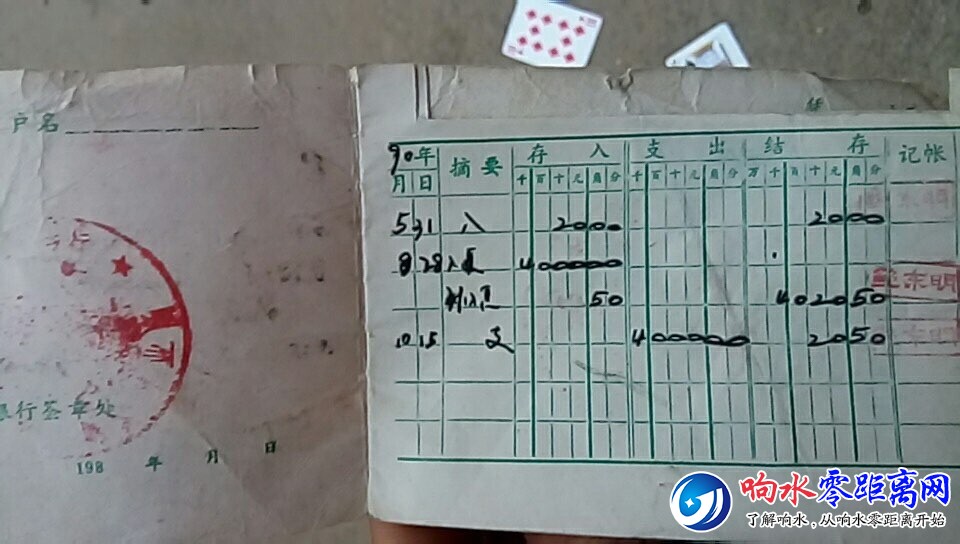 户名
银行签章处
198 年 月 日
90年 摘要 存入 支出 结存 记帐
月 日 千 百 十 元 角 分 千 百 十 元 角 分 万 千 百 十 元 角 分
5 31 入 2000 2000
8 28 入 400000
50 402050 东明
10 15 支 400000 2050
响水零距离网
了解响水,从响水零距离开始